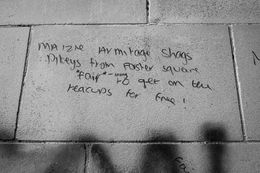 MAIZIE Armitage Shags
Pikeys from Foster square
"Fair" to get on the
teacups for free!